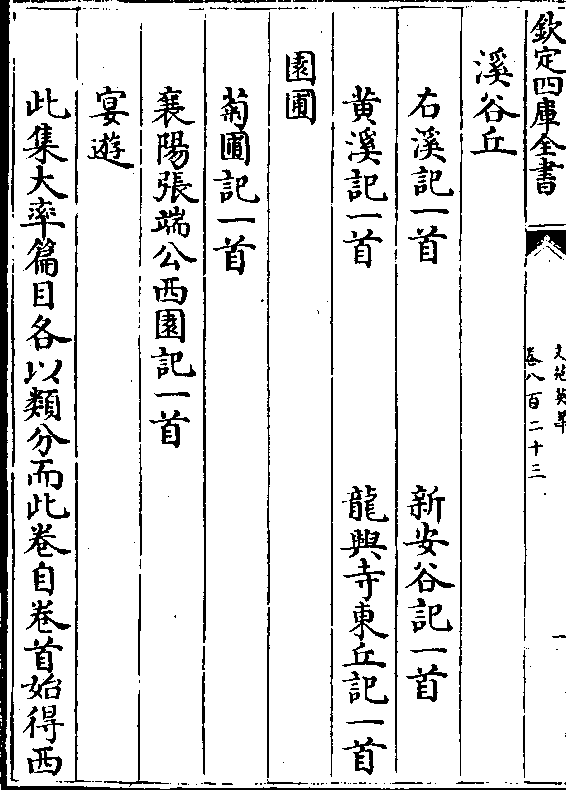 欽定四庫全書
文苑英華
卷八百二十三
一
溪谷丘
右溪記一首
新安谷記一首
黄溪記一首
龍興寺東丘記一首
園圃
菊圃記一首
襄陽張端公西園記一首
宴遊
此集大率篇目各以類分而此卷自卷首始得西